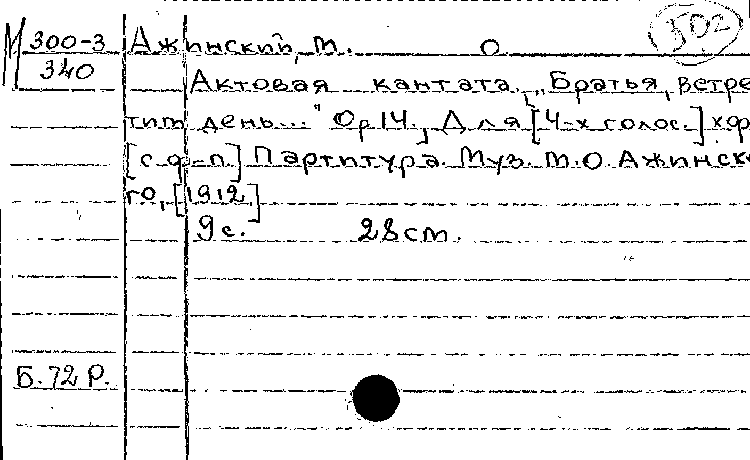 М 300-3 Ажинский, М. О. 502
340
Актовая кантата. „Братья, встре
тим день..." Ор 14., Для [4-х голос.] хор
[с ф-п.] Партитура. Муз. М.О. Ажинск
го, [1912]
9 с. 28 см.
Б. 72 Р.